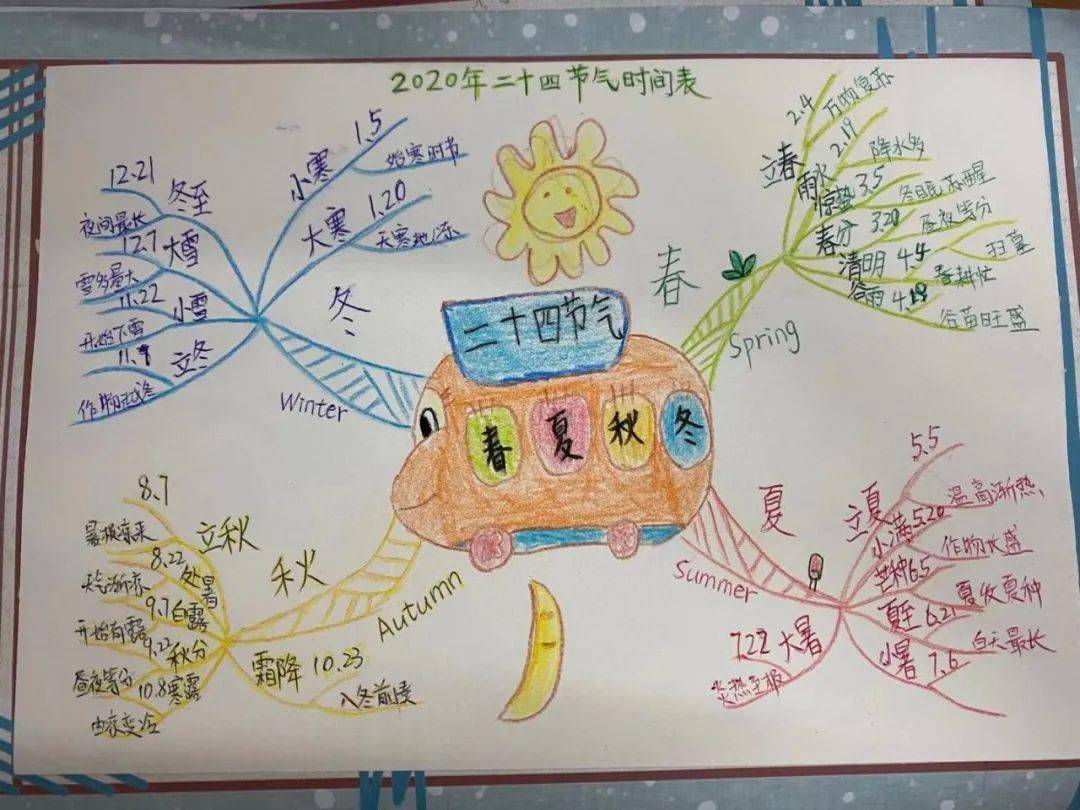 2020年二十四节气时间表
二十四节气
春
夏
秋
冬
春
Spring
立春 2.4
万物复苏
雨水 2.19
降水多
惊蛰 3.5
冬日眠苏醒
春分 3.20
昼夜等分
清明 4.4
扫墓
春耕忙
谷雨 4.19
谷苗旺盛
夏
Summer
立夏 5.5
温高渐热
小满 5.20
作物长盛
芒种 6.5
夏收夏种
夏至 6.21
白天最长
小暑 7.6
大暑 7.22
炎热至极
秋
Autumn
立秋 8.7
暑极凉来
处暑 8.22
白露 9.7
开始有露
秋分 9.22
昼夜等分
寒露 10.8
由凉变冷
霜降 10.23
入冬前奏
冬
Winter
立冬 11.7
作物越冬
小雪 11.22
开始下雪
大雪 12.7
雪多量大
冬至 12.21
夜间最长
小寒 1.5
始寒时节
大寒 1.20
天寒地冻